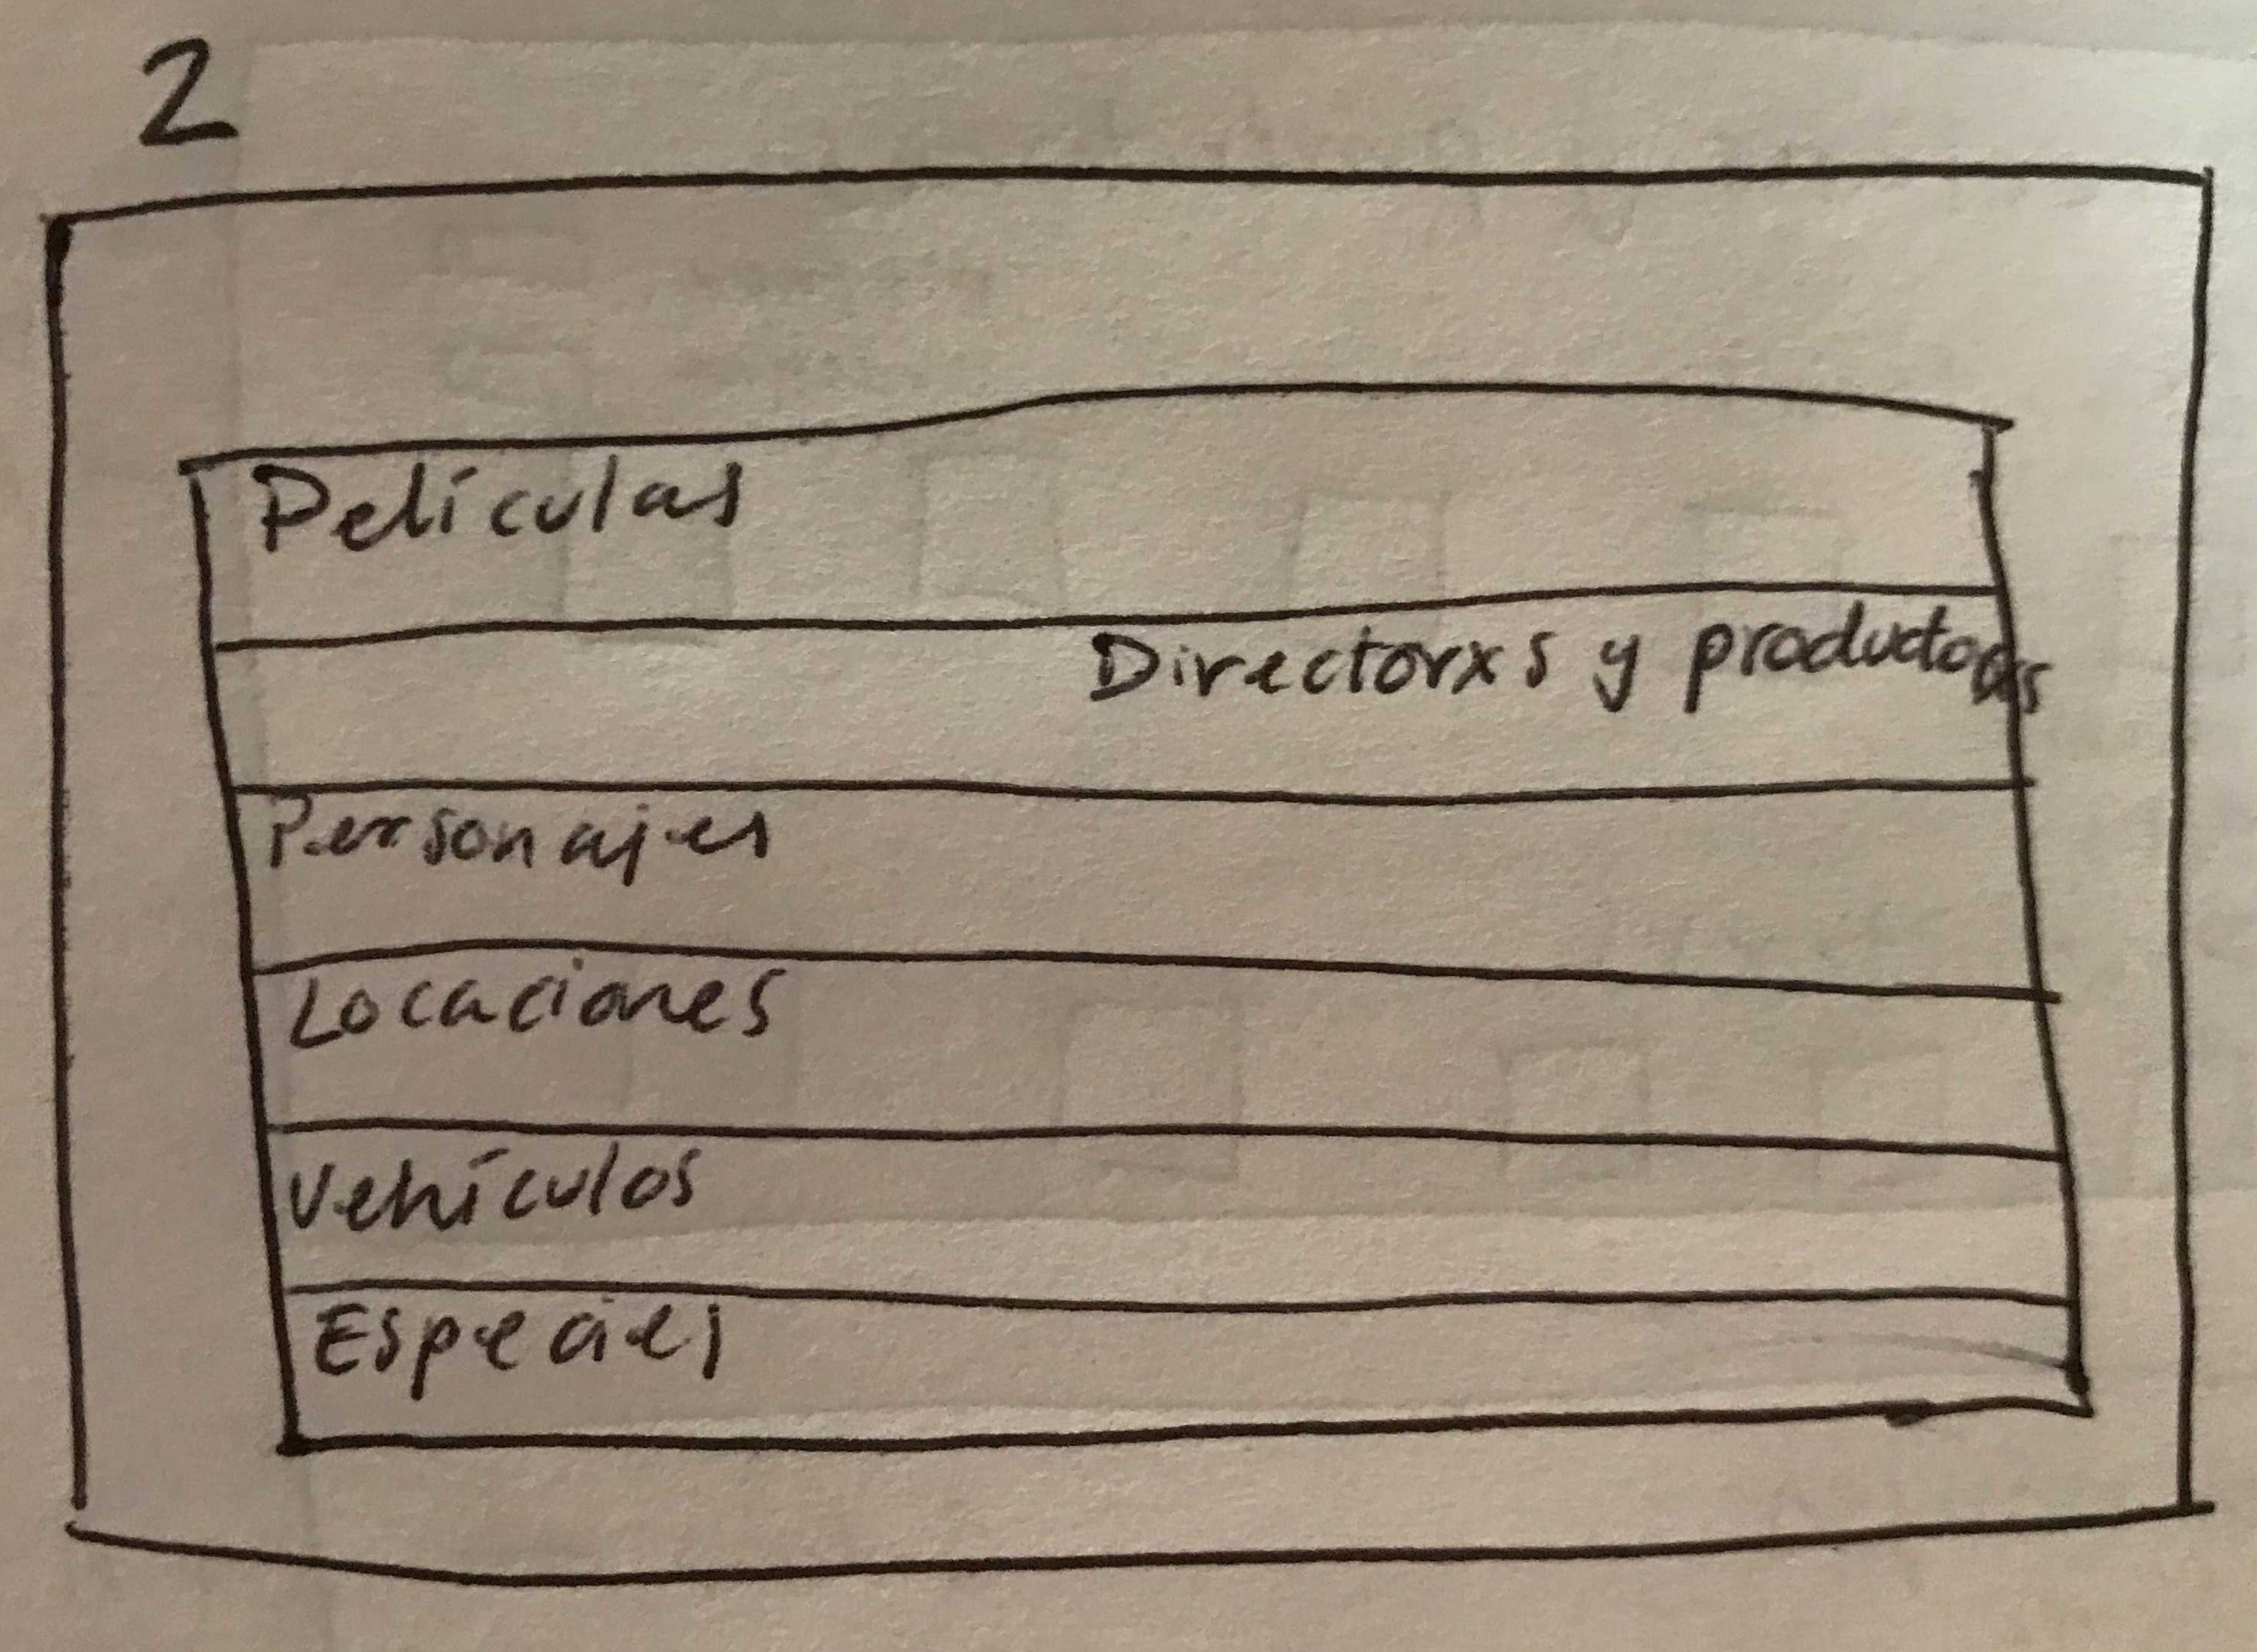 2
Películas
Directorxs y productorxs
Personajes
Locaciones
Vehículos
Especies